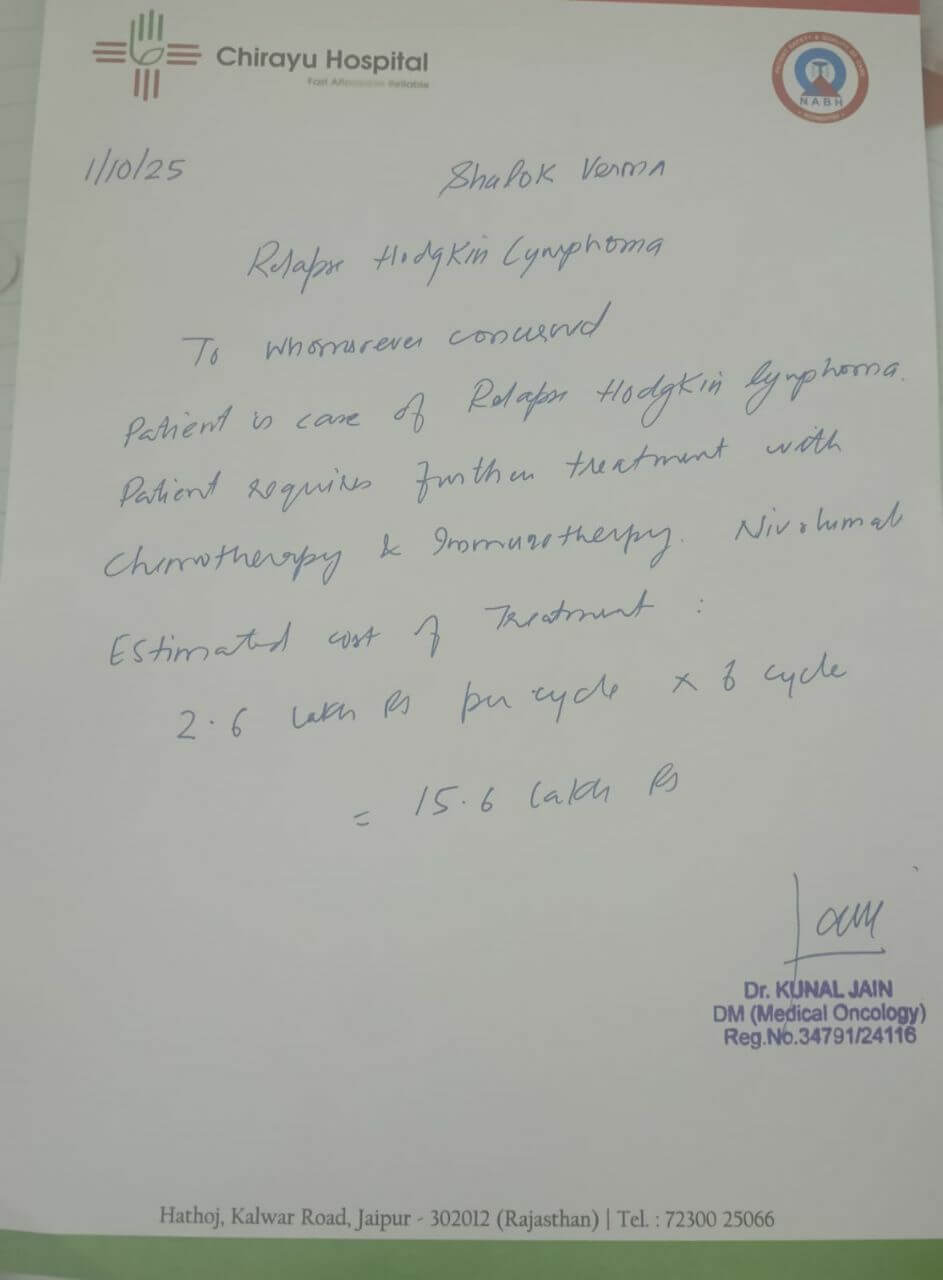 Chirayu Hospital
Fast Affordable Reliable
NABH
1/10/25
Shalok Verma
Relapse Hodgkin Lymphoma
To whomsoever concerned
Patient is case of Relapse Hodgkin lymphoma.
Patient requires further treatment with
Chemotherapy & Immunotherapy. Nivolumab
Estimated cost of Treatment :
2.6 Lakh Rs per cycle x 6 cycle
= 15.6 Lakh Rs
Dr. KUNAL JAIN
DM (Medical Oncology)
Reg.No.34791/24116
Hathoj, Kalwar Road, Jaipur - 302012 (Rajasthan) | Tel. : 72300 25066